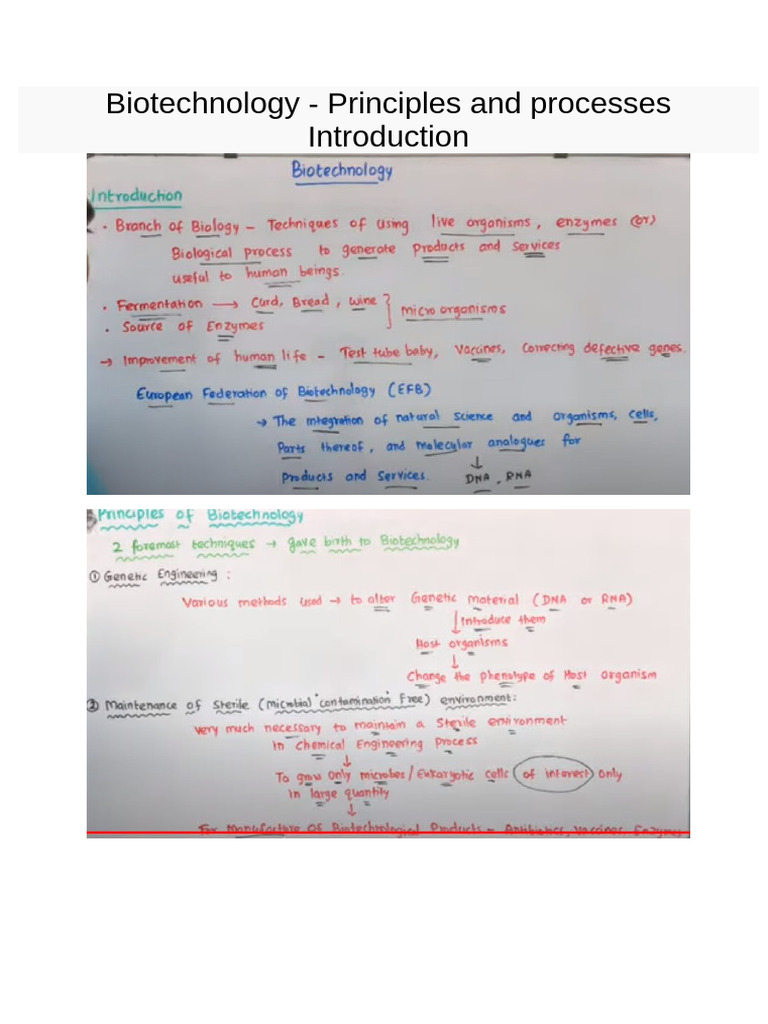 Biotechnology - Principles and processes
Introduction
Biotechnology
Introduction
• Branch of Biology – Techniques of using live organisms, enzymes (or)
Biological process to generate products and services
useful to human beings.
• Fermentation → Curd, Bread, wine } micro organisms
• Source of Enzymes
→ Improvement of human life – Test tube baby, Vaccines, Correcting defective genes.
European Federation of Biotechnology (EFB)
→ The integration of natural science and organisms, cells,
Parts thereof, and molecular analogues for
↓
Products and Services. DNA, RNA
Principles of Biotechnology
2 foremost techniques → gave birth to Biotechnology
① Genetic Engineering :
Various methods used → to alter Genetic material (DNA or RNA)
↓ Introduce them
Host organisms
↓
Change the phenotype of Host organism
② Maintenance of Sterile (microbial "contamination" Free) environment:
very much necessary to maintain a Sterile environment
in Chemical Engineering Process
↓
To grow only microbes/Eukaryotic cells of interest only
in large quantity
↓
For Manufacture Of Biotechnological Products – Antibiotics, vaccines, Enzymes